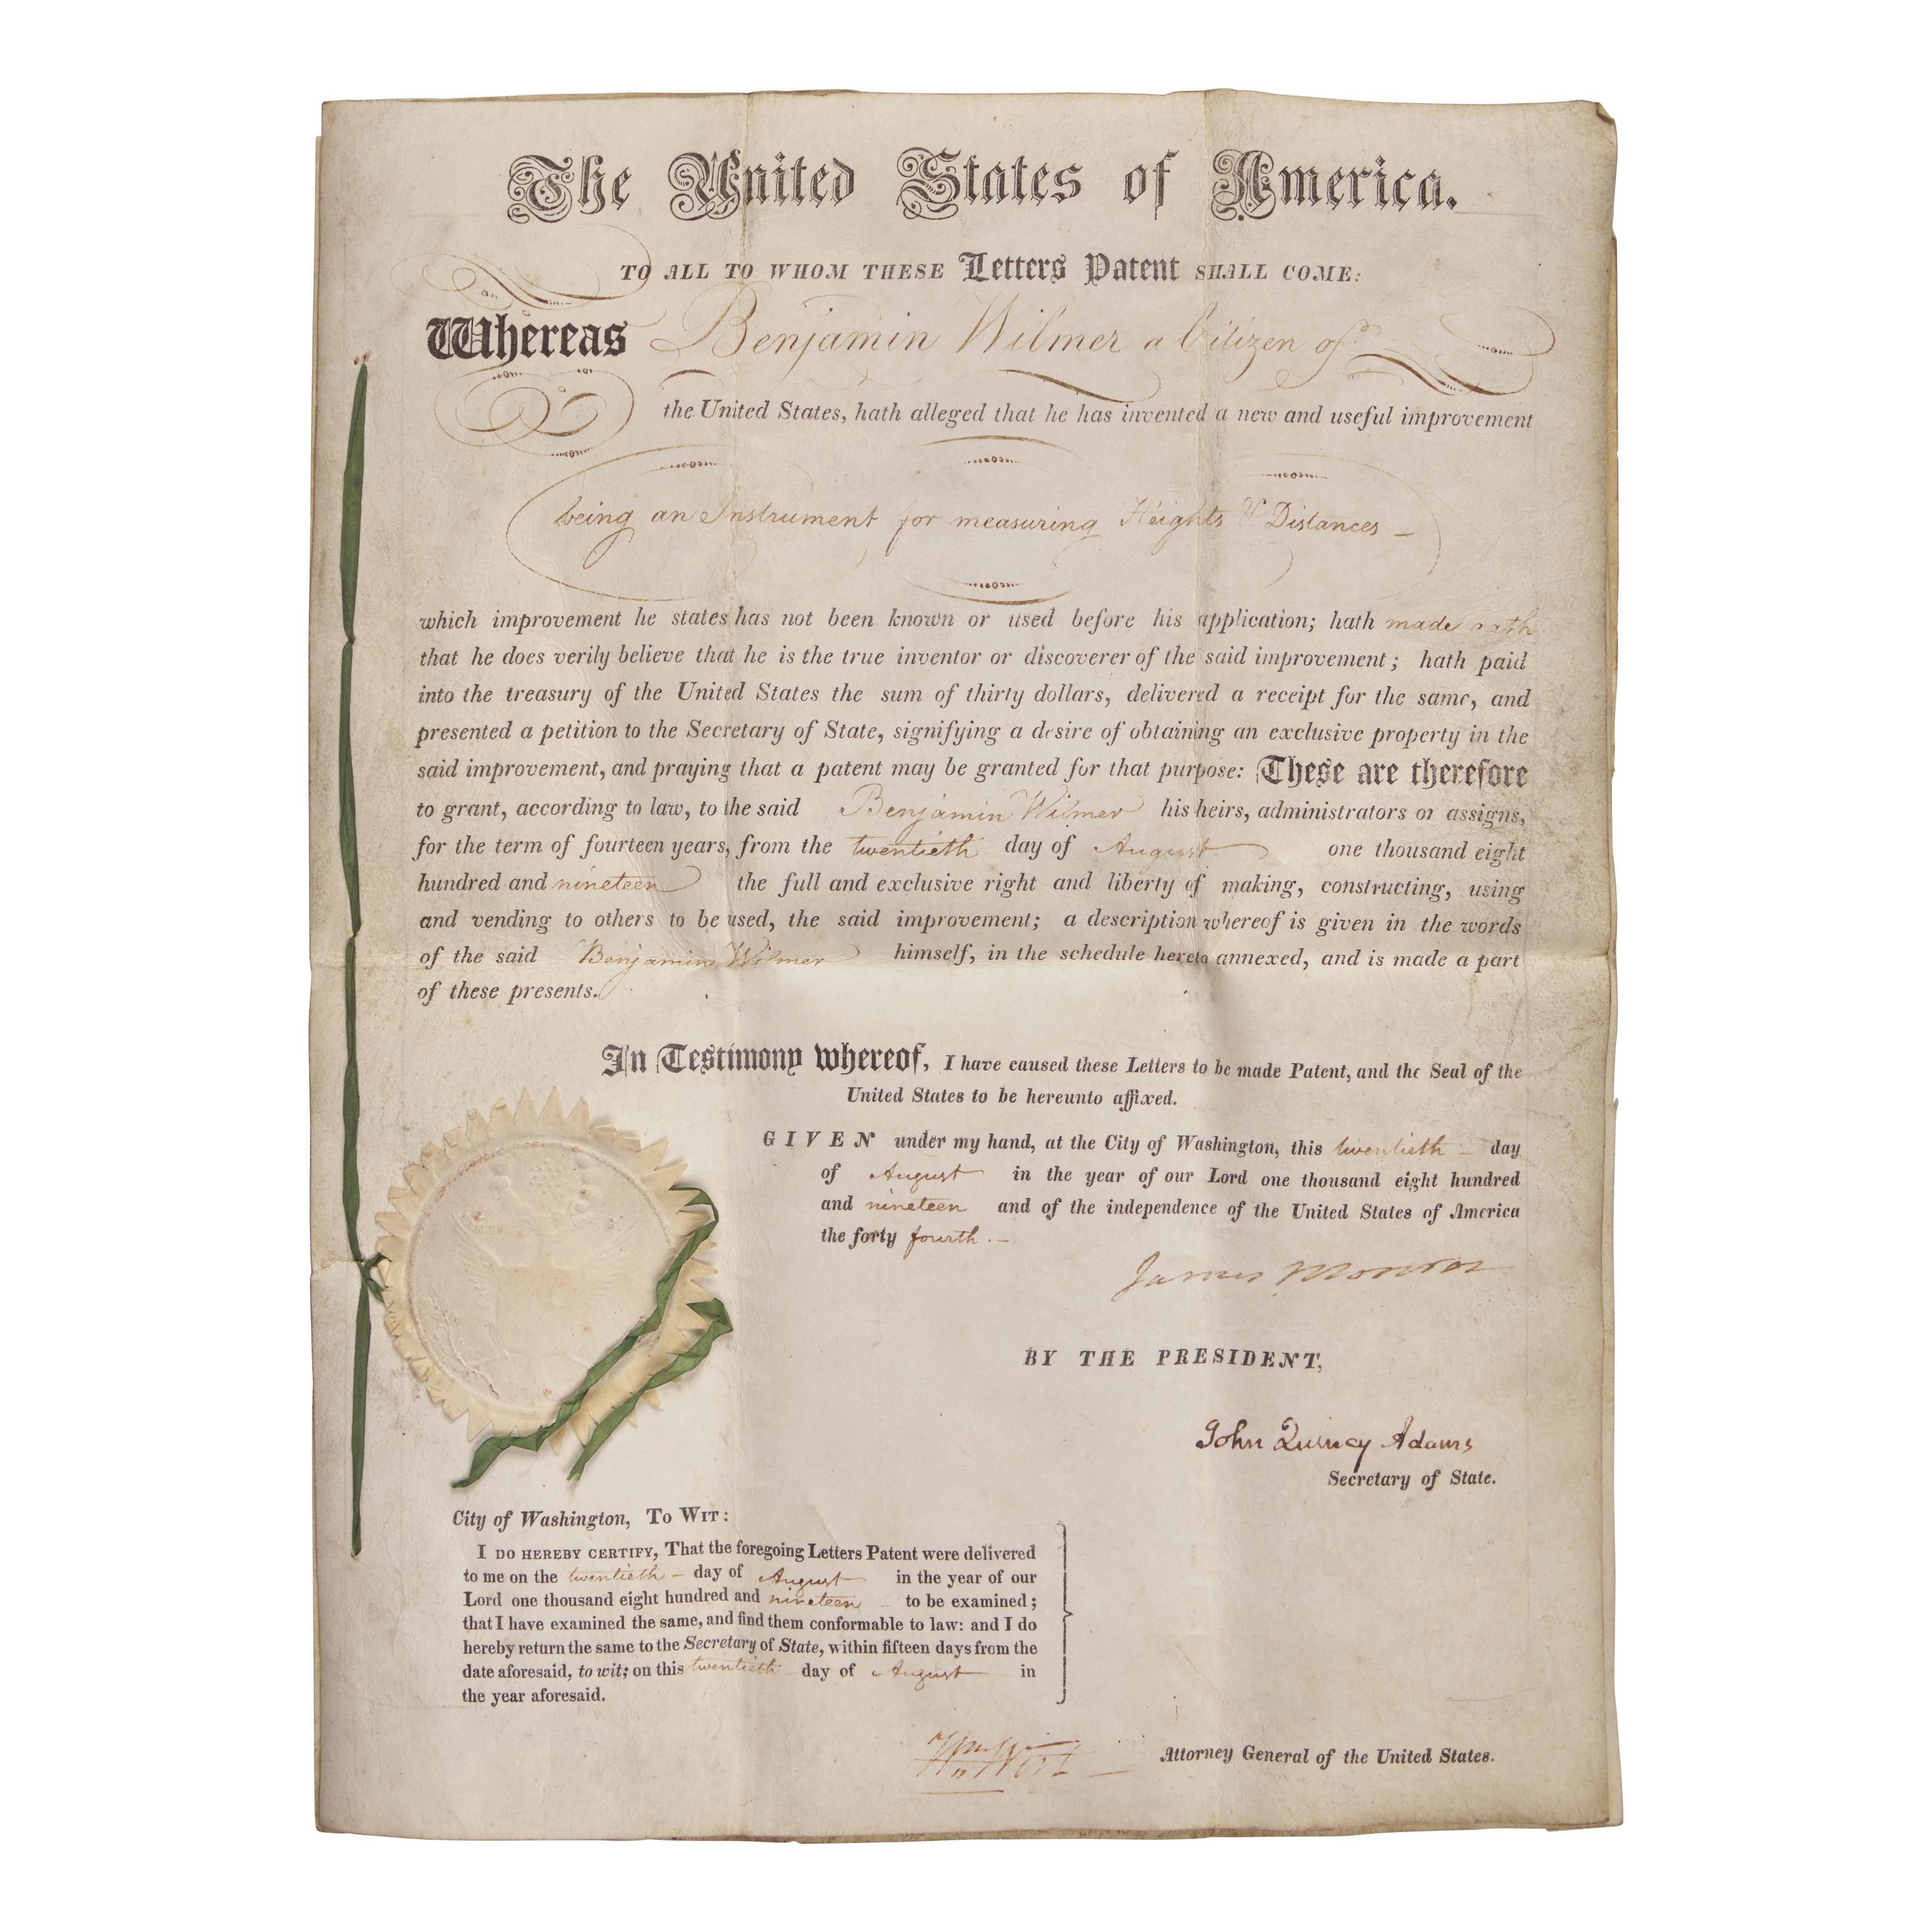 The United States of America.
TO ALL TO WHOM THESE Letters Patent SHALL COME:
Whereas Benjamin Wilmer a Citizen of
the United States, hath alleged that he has invented a new and useful improvement
being an Instrument for measuring Heights & Distances —
which improvement he states has not been known or used before his application; hath made oath
that he does verily believe that he is the true inventor or discoverer of the said improvement; hath paid
into the treasury of the United States the sum of thirty dollars, delivered a receipt for the same, and
presented a petition to the Secretary of State, signifying a desire of obtaining an exclusive property in the
said improvement, and praying that a patent may be granted for that purpose: These are therefore
to grant, according to law, to the said Benjamin Wilmer his heirs, administrators or assigns,
for the term of fourteen years, from the twentieth day of August one thousand eight
hundred and nineteen the full and exclusive right and liberty of making, constructing, using
and vending to others to be used, the said improvement; a description whereof is given in the words
of the said Benjamin Wilmer himself, in the schedule hereto annexed, and is made a part
of these presents.
In Testimony whereof, I have caused these Letters to be made Patent, and the Seal of the
United States to be hereunto affixed.
GIVEN under my hand, at the City of Washington, this twentieth — day
of August in the year of our Lord one thousand eight hundred
and nineteen and of the independence of the United States of America
the forty fourth. —
James Monroe
BY THE PRESIDENT,
John Quincy Adams
Secretary of State.
City of Washington, TO WIT:
I DO HEREBY CERTIFY, That the foregoing Letters Patent were delivered
to me on the twentieth — day of August in the year of our
Lord one thousand eight hundred and nineteen — to be examined;
that I have examined the same, and find them conformable to law: and I do
hereby return the same to the Secretary of State, within fifteen days from the
date aforesaid, to wit; on this twentieth day of August in
the year aforesaid.
Wm Wirt — Attorney General of the United States.